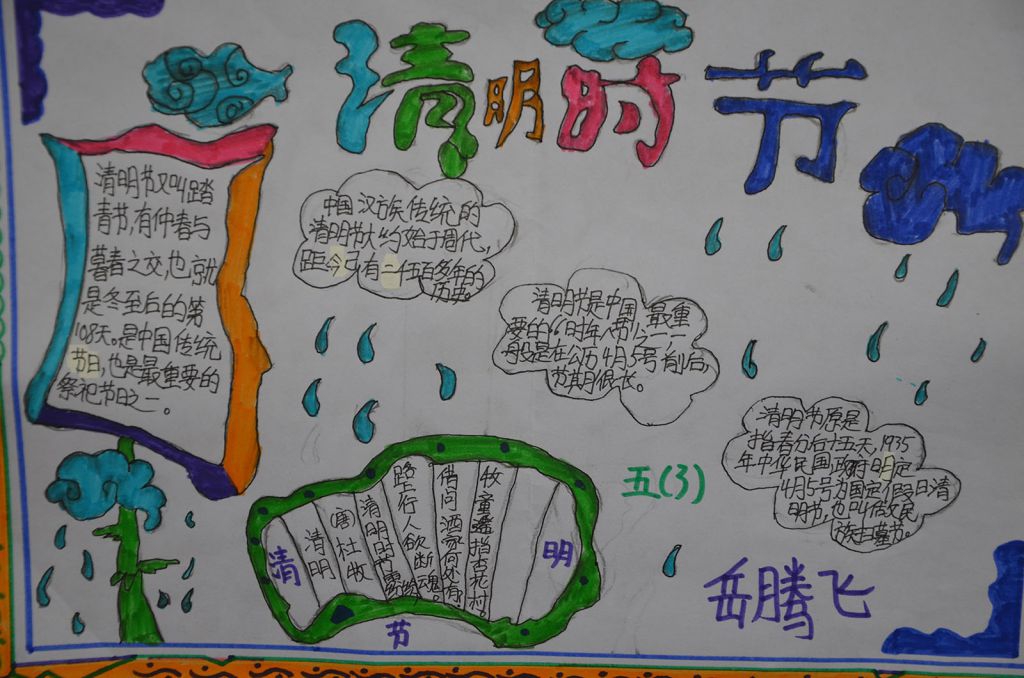 清明时节
清明节又叫踏
青节,有仲春与
暮春之交,也就
是冬至后的第
108天。是中国传统
节日,也是最重要的
祭祀节日之一。
中国汉族传统的
清明节大约始于周代,
距今已有二千五百多年的
历史。
清明节是中国最重
要的“时年八节”之一,一
般是在公历4月5号前后,
节期很长。
清明节原是
指春分后十五天,1935
年中华民国政府明定
4月5号为国定假日清
明节,也叫做民
族扫墓节。
五(3)
岳腾飞
清
清明
(唐)杜牧
清明时节雨纷纷
路行人欲断魂。
借问酒家何处有,
牧童遥指杏花村。
明
节